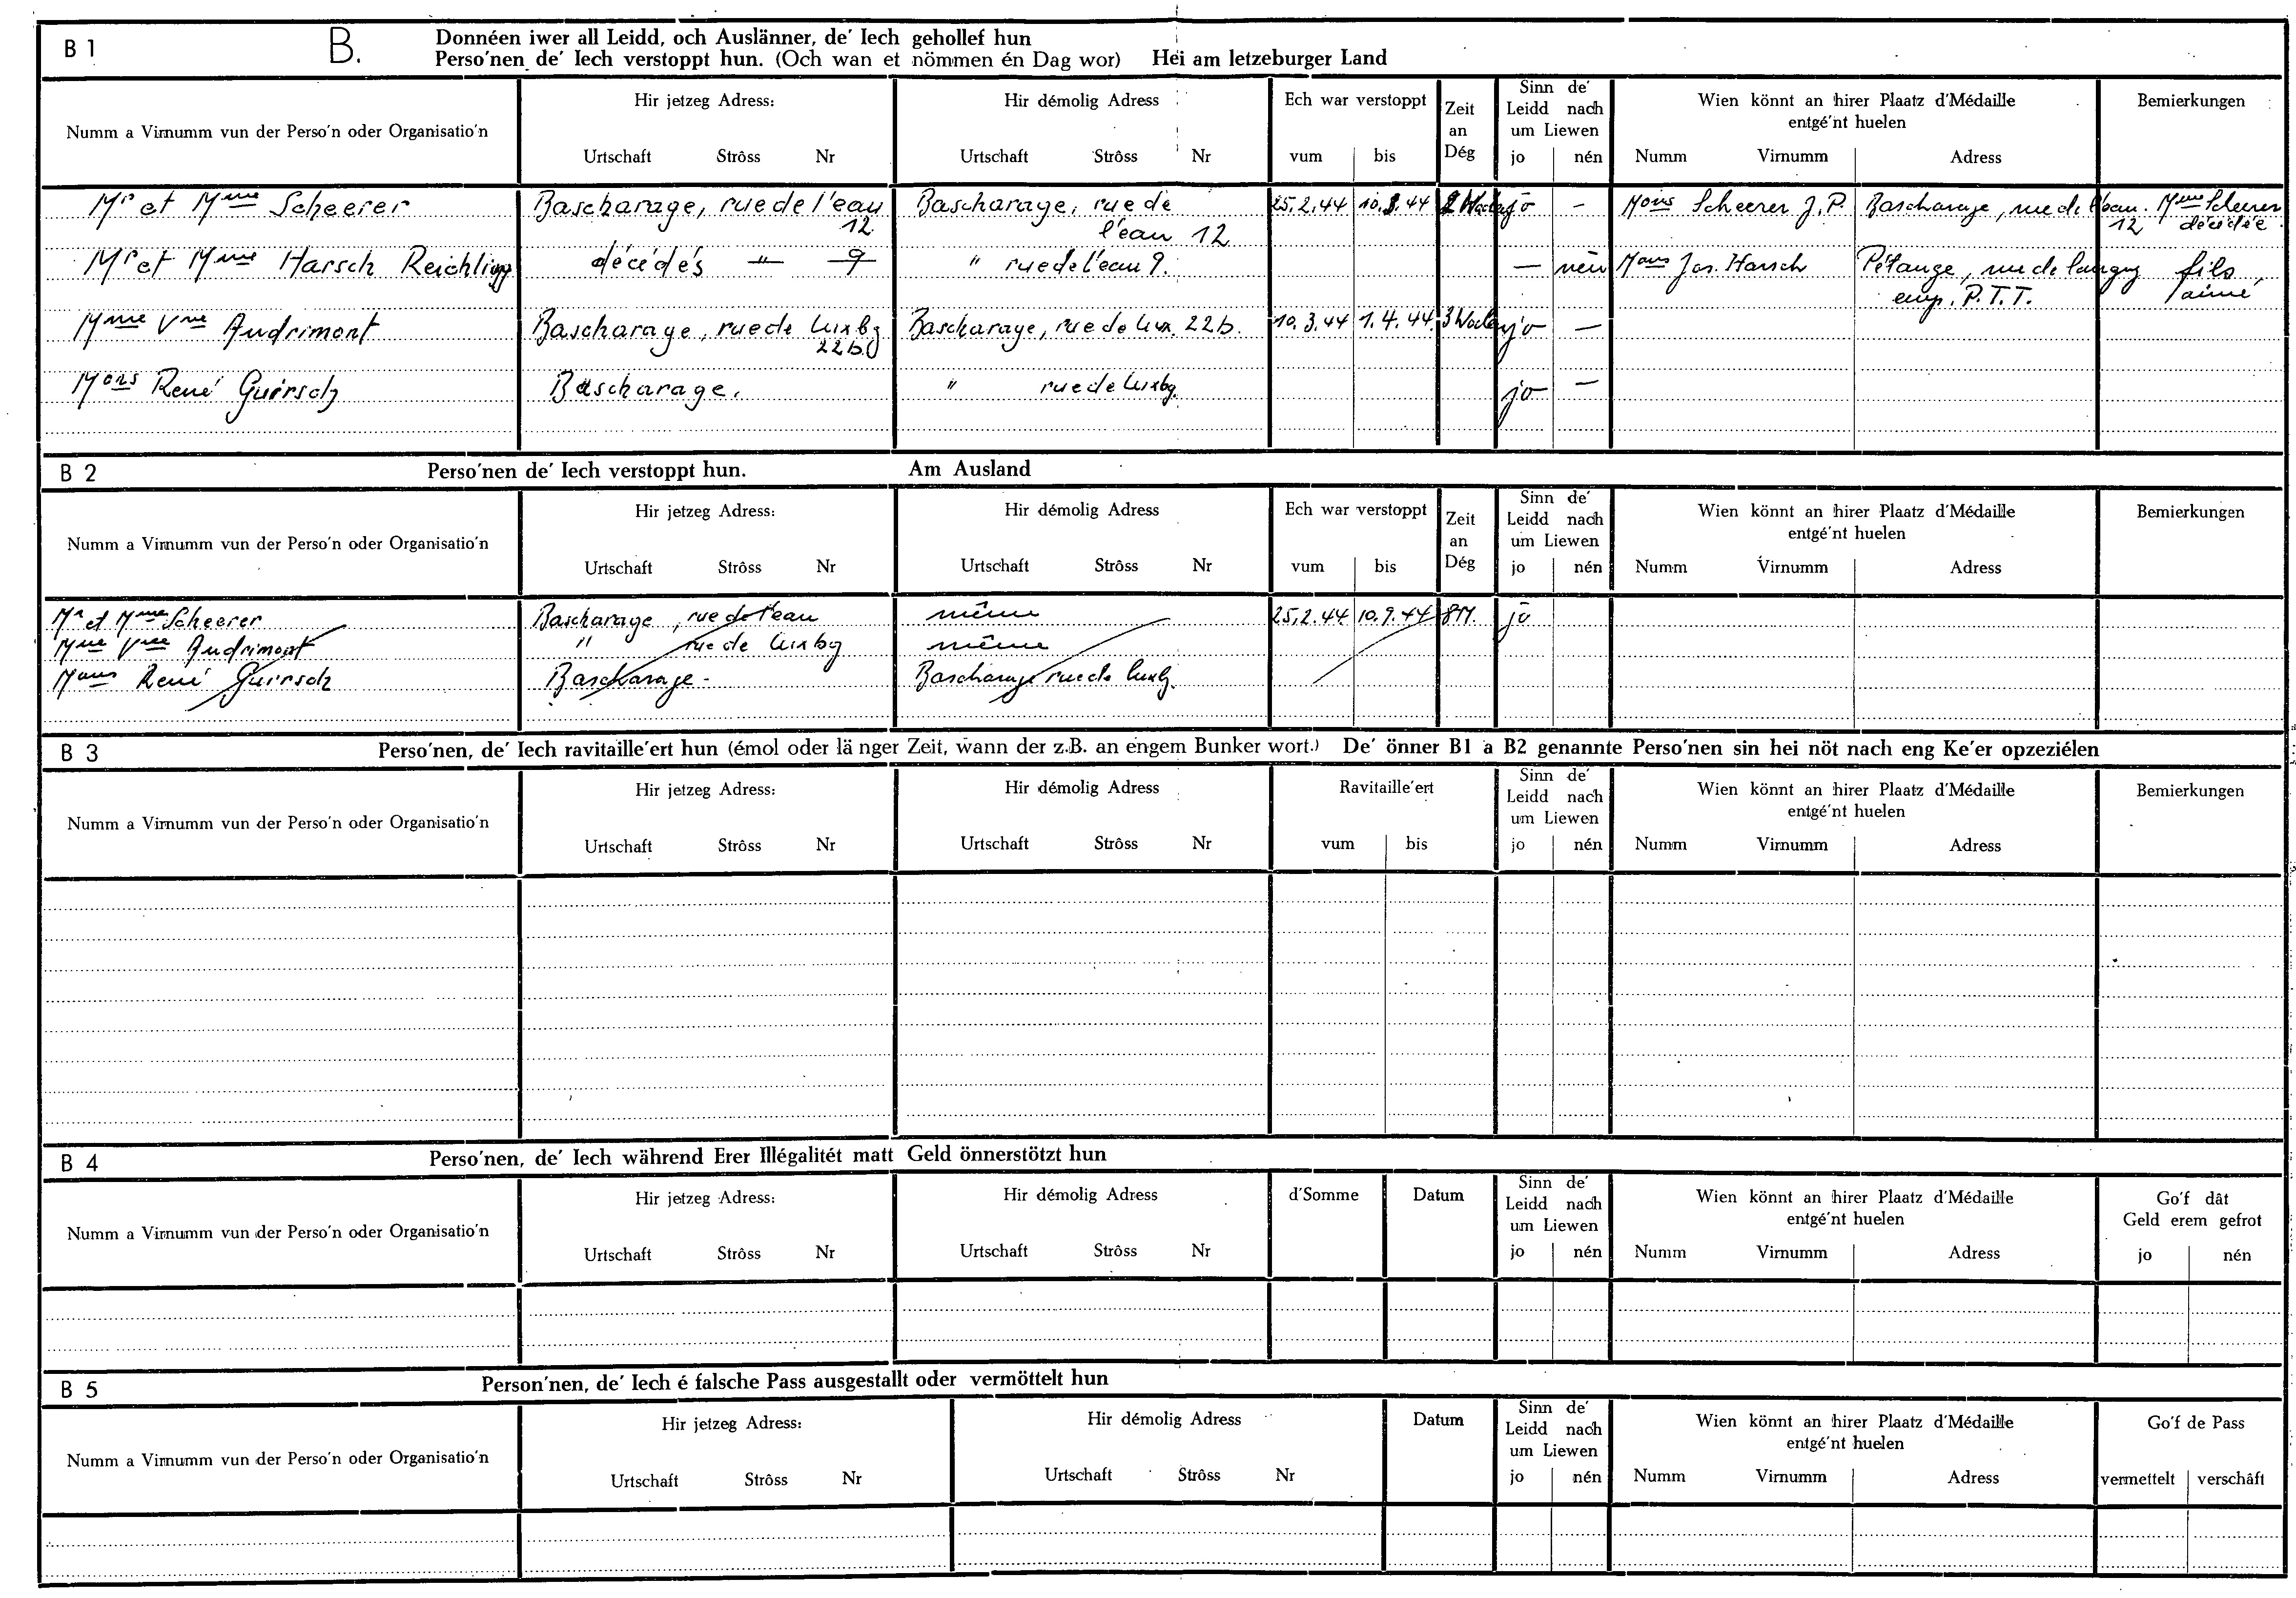 B 1 B. Donnéen iwer all Leidd, och Auslänner, de' Iech gehollef hun
Perso'nen de' Iech verstoppt hun. (Och wan et nömmen én Dag wor) Hei am letzeburger Land
Numm a Virnumm vun der Perso'n oder Organisatio'n
Hir jetzeg Adress:
Urtschaft Strôss Nr
Hir démolig Adress
Urtschaft Strôss Nr
Ech war verstoppt
vum bis
Zeit
an
Dég
Sinn de'
Leidd nach
um Liewen
jo nén
Wien könnt an hirer Plaatz d'Médaille
entgé'nt huelen
Numm Virnumm Adress
Bemierkungen
Mr et Mme Scheerer Bascharage, rue de l'eau Bascharage, rue de 25.2.44 10.3.44 2 Wochen jo - Mons Scheerer J.P. Bascharage, rue de l'eau. Mme Scheerer
12 l'eau 12 12 décédée
Mr et Mme Harsch Reichling décédés " 9 " rue de l'eau 9. — nén Mons Jos. Harsch Pétange, rue de Longwy fils
emp. P.T.T. aîné
Mme Vve Audrimont Bascharage, rue de Luxbg Bascharage, rue de Lux. 22b. 10.3.44 1.4.44. 3 Wochen jo —
22b.
Mons René Guirsch Bascharage. " rue de Luxbg. jo —
B 2 Perso'nen de' Iech verstoppt hun. Am Ausland
Numm a Virnumm vun der Perso'n oder Organisatio'n
Hir jetzeg Adress:
Urtschaft Strôss Nr
Hir démolig Adress
Urtschaft Strôss Nr
Ech war verstoppt
vum bis
Zeit
an
Dég
Sinn de'
Leidd nach
um Liewen
jo nén
Wien könnt an hirer Plaatz d'Médaille
entgé'nt huelen
Numm Virnumm Adress
Bemierkungen
Mr et Mme Scheerer Bascharage, rue de l'eau même 25.2.44 10.9.44 8M. jo
Mme Vve Audrimont " rue de Luxbg même
Mons René Guirsch Bascharage - Bascharage rue de Luxbg.
B 3 Perso'nen, de' Iech ravitaille'ert hun (émol oder länger Zeit, wann der z.B. an engem Bunker wort.) De' önner B1 a B2 genannte Perso'nen sin hei nöt nach eng Ke'er opzeziélen
Numm a Virnumm vun der Perso'n oder Organisatio'n
Hir jetzeg Adress:
Urtschaft Strôss Nr
Hir démolig Adress
Urtschaft Strôss Nr
Ravitaille'ert
vum bis
Sinn de'
Leidd nach
um Liewen
jo nén
Wien könnt an hirer Plaatz d'Médaille
entgé'nt huelen
Numm Virnumm Adress
Bemierkungen
B 4 Perso'nen, de' Iech während Erer Illégalitét matt Geld önnerstötzt hun
Numm a Virnumm vun der Perso'n oder Organisatio'n
Hir jetzeg Adress:
Urtschaft Strôss Nr
Hir démolig Adress
Urtschaft Strôss Nr
d'Somme Datum
Sinn de'
Leidd nach
um Liewen
jo nén
Wien könnt an hirer Plaatz d'Médaille
entgé'nt huelen
Numm Virnumm Adress
Go'f dât
Geld erem gefrot
jo nén
B 5 Person'nen, de' Iech é falsche Pass ausgestallt oder vermöttelt hun
Numm a Virnumm vun der Perso'n oder Organisatio'n
Hir jetzeg Adress:
Urtschaft Strôss Nr
Hir démolig Adress
Urtschaft Strôss Nr
Datum
Sinn de'
Leidd nach
um Liewen
jo nén
Wien könnt an hirer Plaatz d'Médaille
entgé'nt huelen
Numm Virnumm Adress
Go'f de Pass
vermettelt verschâft